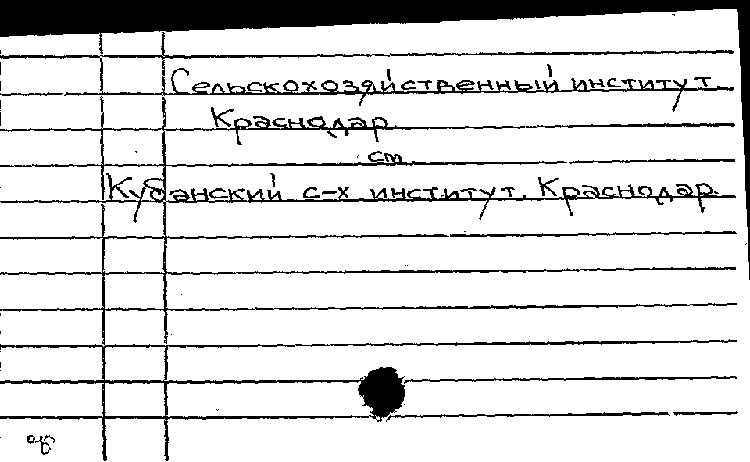 Сельскохозяйственный институт
Краснодар
см.
Кубанский с-х институт. Краснодар.